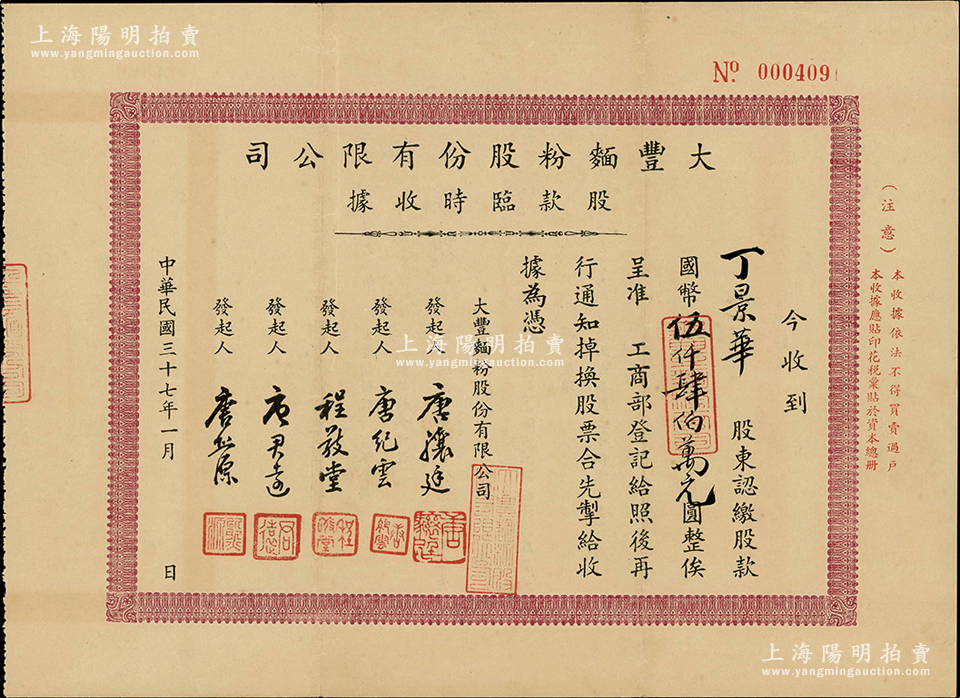 上海陽明拍賣
www.yangmingauction.com
Nº 000409
大豐麵粉股份有限公司
股款臨時收據
(注意)
本收據依法不得買賣過戶
本收據應貼印花税彙貼於資本總册
今收到
丁景華 股東認繳股款
國幣伍仟肆佰萬元圓整俟
呈准 工商部登記給照後再
行通知掉換股票合先掣給收
據為憑
大豐麵粉股份有限公司
發起人 唐驤廷
發起人 唐紀雲
發起人 程敬堂
發起人 唐君遠
發起人
中華民國三十七年一月 日
上海陽明拍賣
www.yangmingauction.com
上海陽明拍賣
www.yangmingauction.com